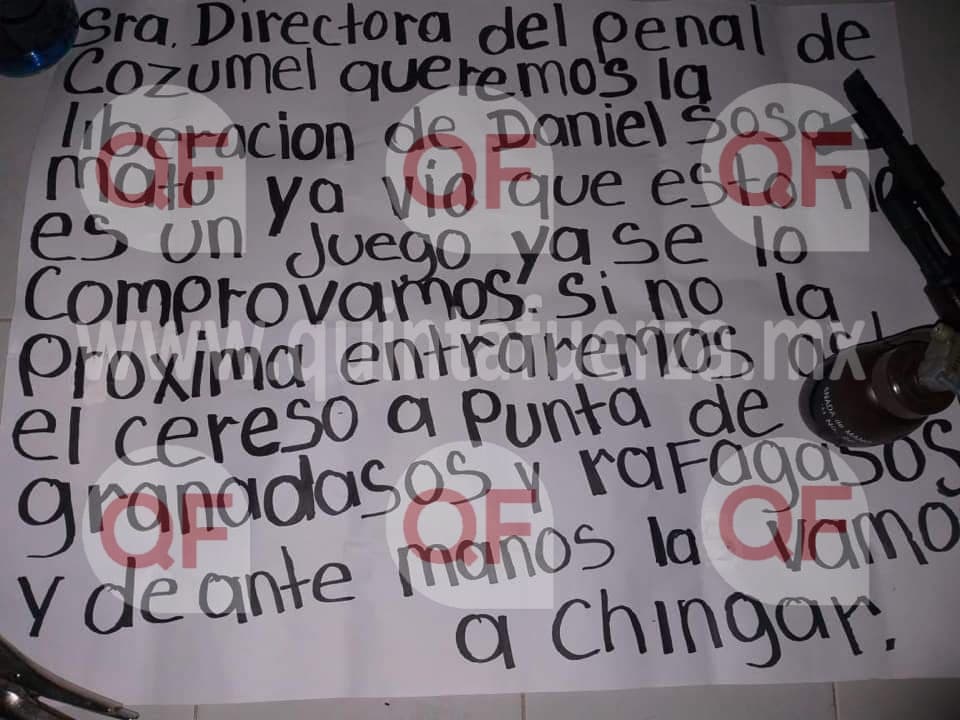 Sra. Directora del penal de
Cozumel queremos la
liberacion de Daniel Sosa
mato ya vio que esto no
es un juego ya se lo
Comprovamos. si no la
Proxima entraremos asta
el cereso a punta de
granadasos y rafagasos
y de ante manos la vamos
a chingar.
QF
QF
QF
www.quintafuerza.mx
QF
QF
QF